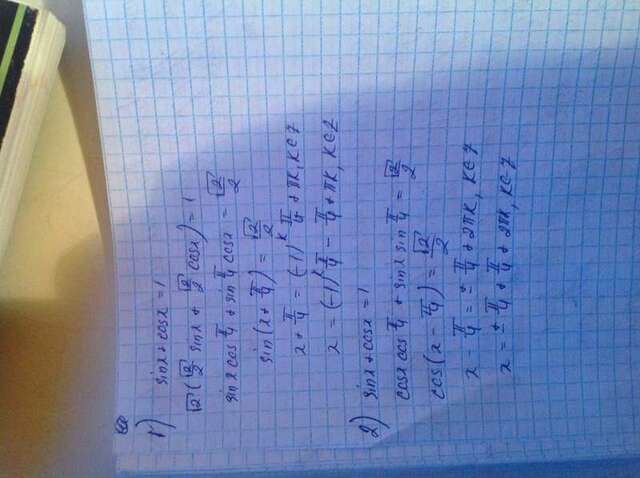 1) sinx + cosx = 1
√2(√2/2 sinx + √2/2 cosx) = 1
sinx cos π/4 + sin π/4 cosx = √2/2
sin(x + π/4) = √2/2
x + π/4 = (-1)^k π/4 + πk, k∈Z
x = (-1)^k π/4 - π/4 + πk, k∈Z
2) sinx + cosx = 1
cosx cos π/4 + sinx sin π/4 = √2/2
cos(x - π/4) = √2/2
x - π/4 = ± π/4 + 2πk, k∈Z
x = ± π/4 + π/4 + 2πk, k∈Z